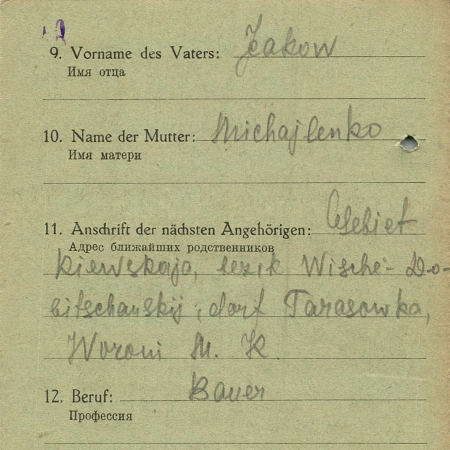 9. Vorname des Vaters: Jeakow
Имя отца
10. Name der Mutter: Michajlenko
Имя матери
11. Anschrift der nächsten Angehörigen: Gebiet
Адрес ближайших родственников
kiewskaja, bezik Wische-Do-
bitschanskij, dorf Tarasowka,
Woroni M. K.
12. Beruf: Bauer
Профессия